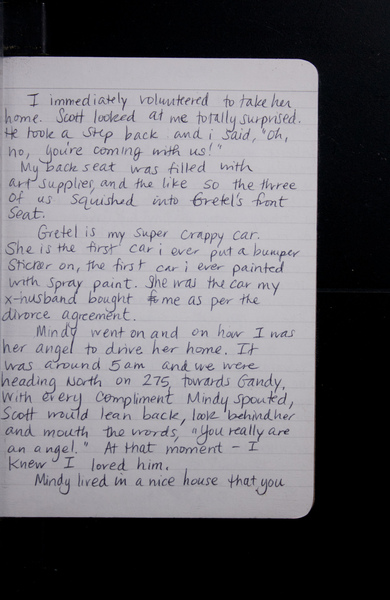 I immediately volunteered to take her
home. Scott looked at me totally surprised.
He took a step back and i said, "Oh,
no, you're coming with us!"
My back seat was filled with
art supplies, and the like so the three
of us squished into Gretel's front
seat.
Gretel is my super crappy car.
She is the first car i ever put a bumper
sticker on, the first car i ever painted
with spray paint. She was the car my
x-husband bought me as per the
divorce agreement.
Mindy went on and on how I was
her angel to drive her home. It
was around 5am and we were
heading North on 275, towards Gandy,
with every compliment Mindy spouted,
Scott would lean back, look behind her
and mouth the words, "You really are
an angel." At that moment - I
knew I loved him.
Mindy lived in a nice house that you